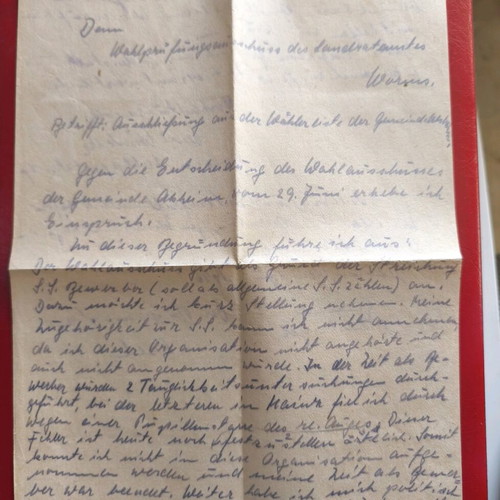 Dem
Wahlprüfungsausschuss des Landratamtes
Worms.
Betrifft: Ausschließung aus der Wählerliste der Gemeinde
Gegen die Entscheidung des Wahlausschusses
der Gemeinde Abheim, vom 29. Juni erhebe ich
Einspruch.
Zu dieser Begründung führe ich aus:
Der Wahlausschuss gibt als Grund der Streichung
S.S. Bewerber (soll als allgemeine S.S. zählen) an.
Dazu möchte ich kurz Stellung nehmen. Meine
Zugehörigkeit zur S.S. kann ich nicht annehmen
da ich dieser Organisation nicht angehörte und
auch nicht angenommen wurde. In der Zeit als Be-
werber wurden 2 Tauglichkeitsuntersuchungen durch-
geführt, bei der letzteren in Mainz fiel ich durch
wegen einer Pupillenstarre des re. Auges. Dieser
Fehler ist heute noch festzustellen ärztlich. Somit
konnte ich nicht in diese Organisation aufge-
nommen werden und meine Zeit als Bewer-
ber war beendet. Weiter habe ich mich politisch